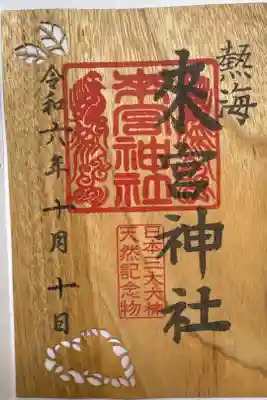 熱海
來宮神社
來宮神社
日本三大樟
天然記念物
令和六年十月十日